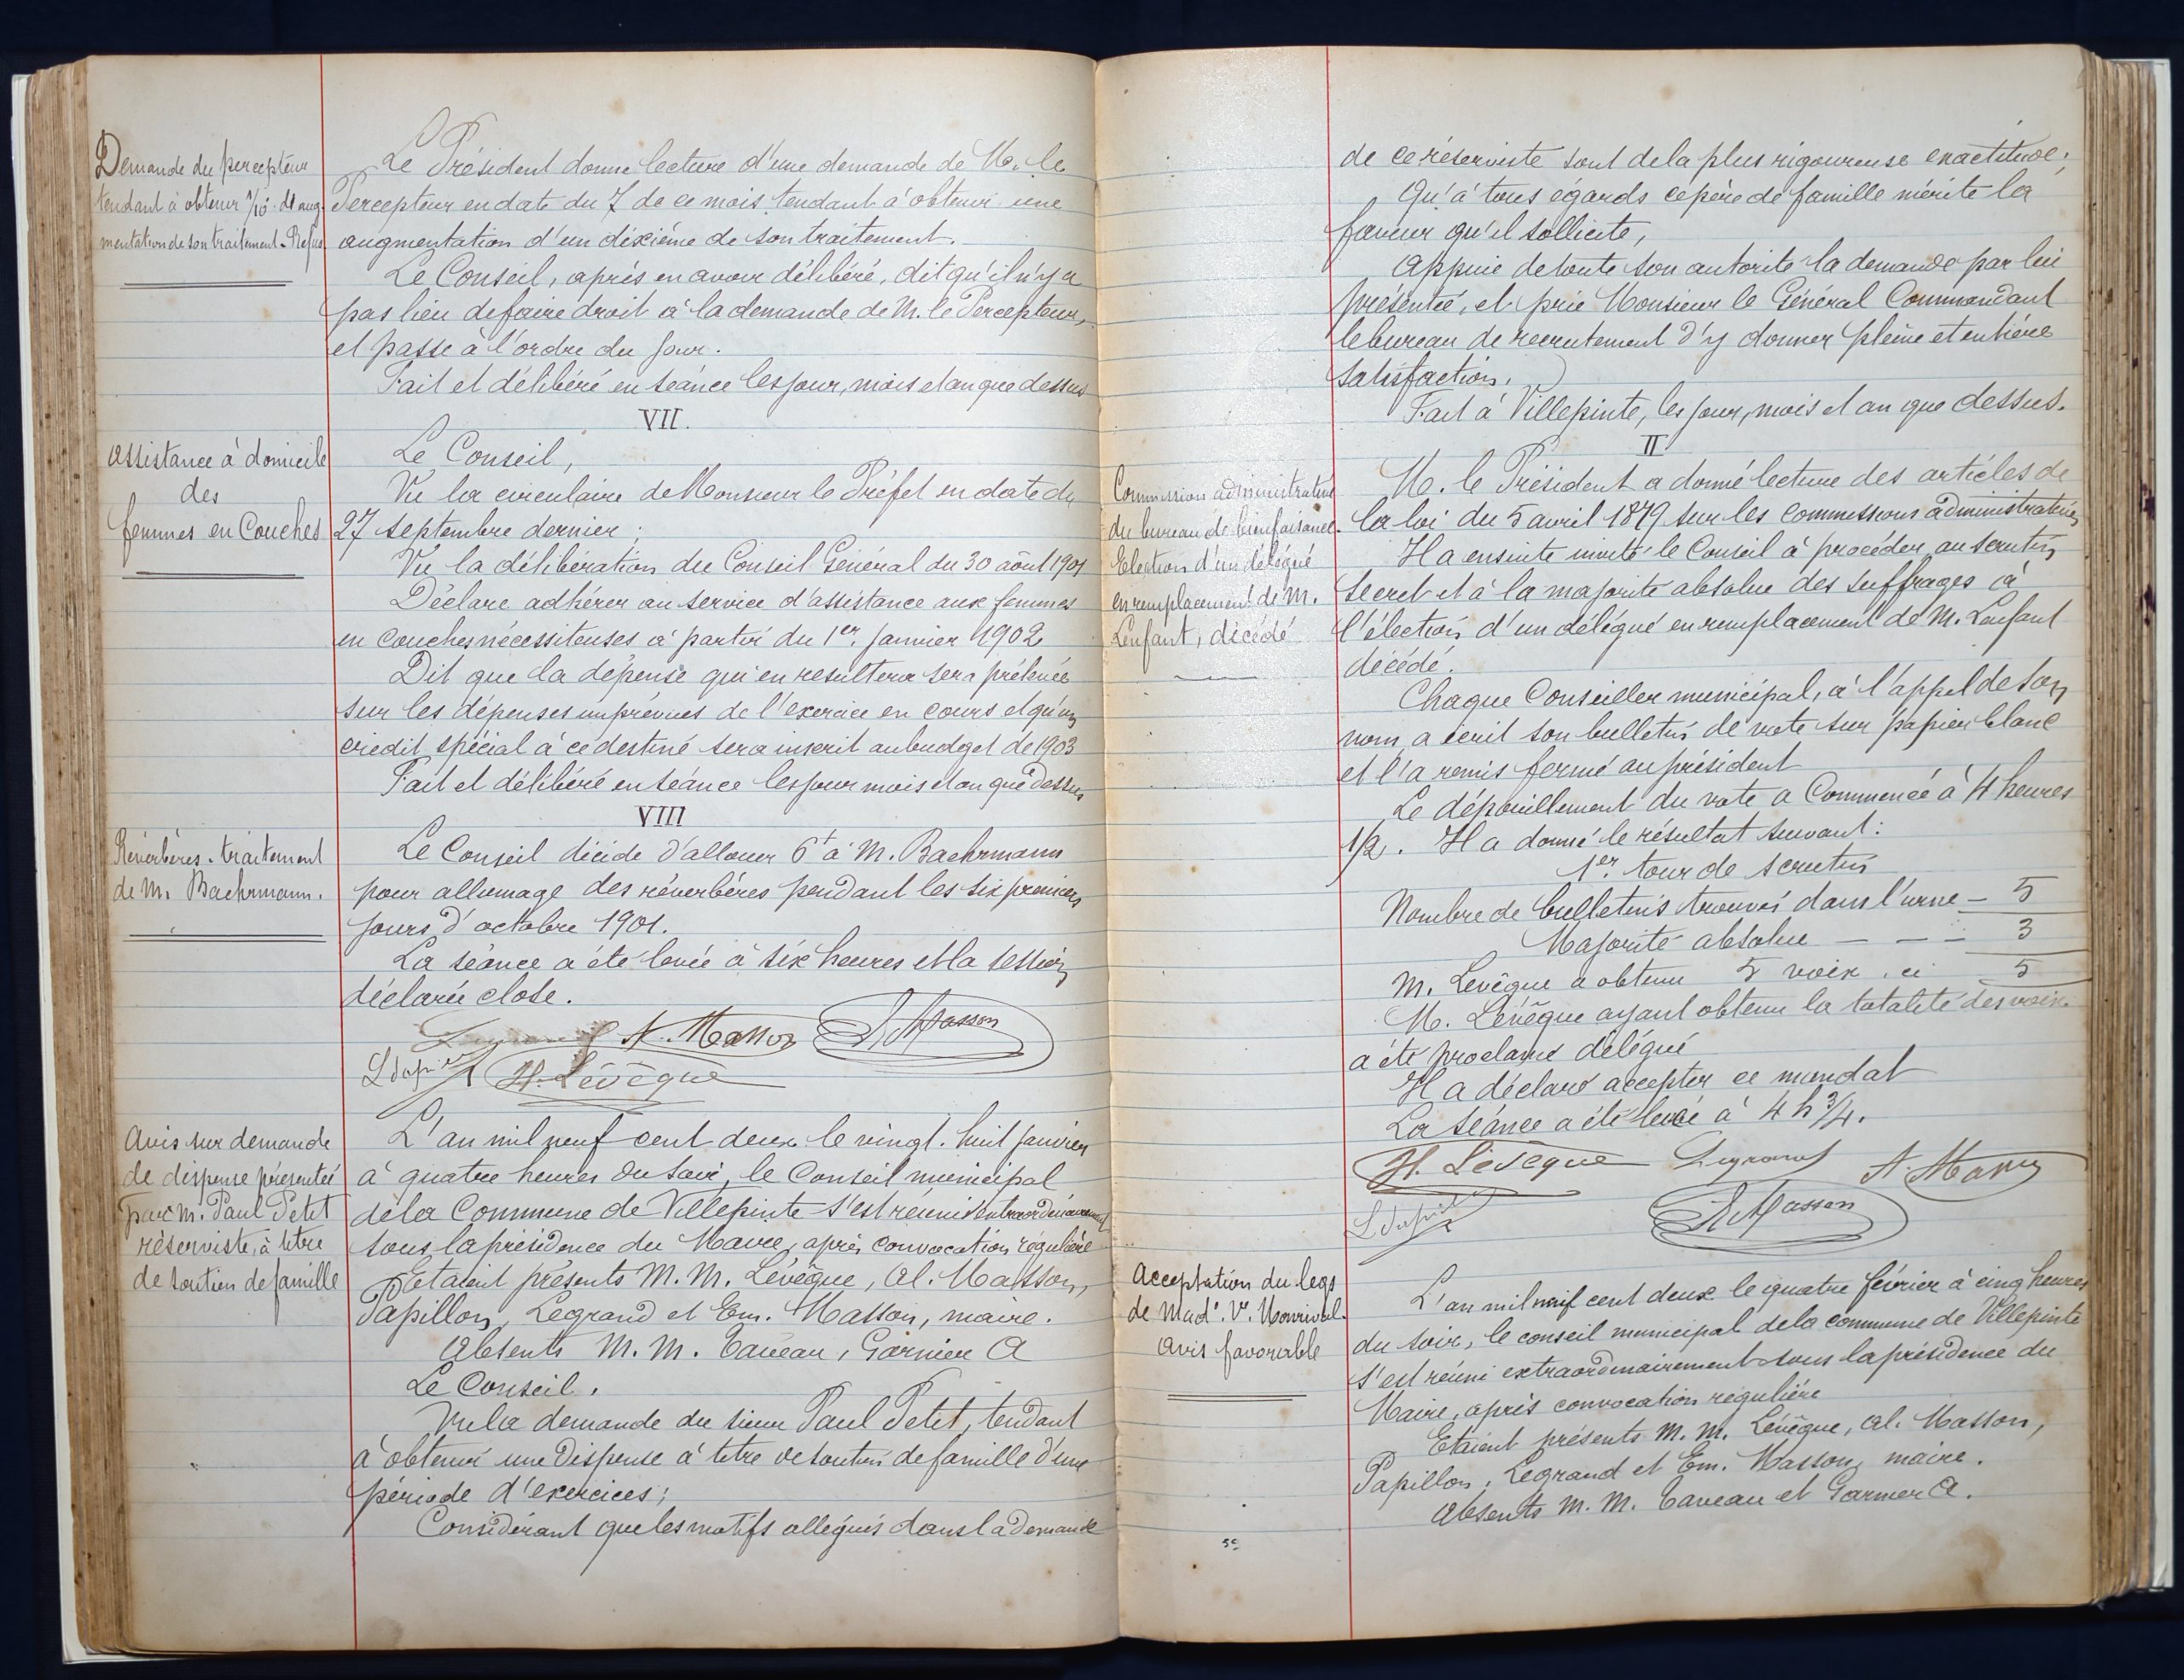 Demande du percepteur
tendant à obtenir 1/10e d'aug-
mentation de son traitement. Refus
Le Président donne lecture d'une demande de M. le
Percepteur en date du 7 de ce mois tendant à obtenir une
augmentation d'un dixième de son traitement.
Le Conseil, après en avoir délibéré, dit qu'il n'y a
pas lieu de faire droit à la demande de M. le Percepteur,
et passe à l'ordre du jour.
Fait et délibéré en séance les jour, mois et an que dessus
VII.
Assistance à domicile
des
femmes en Couches
Le Conseil,
Vu la circulaire de Monsieur le Préfet en date du
27 septembre dernier ;
Vu la délibération du Conseil Général du 30 août 1901
Déclare adhérer au service d'assistance aux femmes
en couches nécessiteuses à partir du 1er. Janvier 1902
Dit que la dépense qui en resultera sera prélevée
sur les dépenses imprévues de l'exercice en cours et qu'un
crédit spécial à ce destiné sera inscrit au budget de 1903
Fait et délibéré en séance les jour mois et an que dessus
VIII
Réverbères - traitement
de M. Bachrmann.
Le Conseil décide d'allouer 6f à M. Bachrmann
pour allumage des réverbères pendant les six premiers
jours d'octobre 1901.
La séance a été levée à six heures et la session
déclarée close.
Legrand A. Masson E. Masson
L. Papillon H. Lévêque
Avis sur demande
de dispense présentée
par M. Paul Petit
réserviste, à titre
de soutien de famille
L'an mil neuf cent deux le vingt-huit janvier
à quatre heures du soir, le Conseil municipal
de la Commune de Villepinte s'est réuni extraordinairement
sous la présidence du Maire, après convocation régulière
Etaient présents M.M. Lévêque, Al. Masson,
Papillon, Legrand et Em. Masson, maire.
Absents M.M. Taveau, Garnier A
Le Conseil.
Vu la demande du sieur Paul Petit, tendant
à obtenir une dispense à titre de soutien de famille d'une
période d'exercices ;
Considérant que les motifs allégués dans la demande
de ce réserviste sont de la plus rigoureuse exactitude ;
Qu'à tous égards ce père de famille mérite la
faveur qu'il sollicite,
Appuie de toute son autorité la demande par lui
présentée, et prie Monsieur le Général Commandant
le bureau de recrutement d'y donner pleine et entière
satisfaction.
Fait à Villepinte, les jour, mois et an que dessus.
II
Commission administrative
du bureau de bienfaisance.
Election d'un délégué
en remplacement de M.
Lenfant, décédé
M. le Président a donné lecture des articles de
la loi du 5 avril 1879 sur les commissions administratives
Il a ensuite invité le Conseil à procéder au scrutin
secret et à la majorité absolue des suffrages à
l'élection d'un délégué en remplacement de M. Lenfant
décédé.
Chaque Conseiller municipal, à l'appel de son
nom a écrit son bulletin de vote sur papier blanc
et l'a remis fermé au président
Le dépouillement du vote a commencé à 4 heures
1/2. Il a donné le résultat suivant :
1er. tour de scrutin
Nombre de bulletins trouvés dans l'urne - 5
Majorité absolue - - - 3
M. Levêque a obtenu 5 voix, ci 5
M. Levêque ayant obtenu la totalité des voix
a été proclamé délégué
Il a déclaré accepter ce mandat
La séance a été levée à 4 h 3/4.
H. Lévêque Legrand A. Masson
L. Papillon E. Masson
Acceptation du legs
de Made. Ve.
Avis favorable
L'an mil neuf cent deux le quatre février à cinq heures
du soir, le conseil municipal de la commune de Villepinte
s'est réuni extraordinairement sous la présidence du
Maire, après convocation régulière
Etaient présents M.M. Lévêque, Al. Masson,
Papillon, Legrand et Em. Masson, maire.
Absents M.M. Taveau et Garnier A.